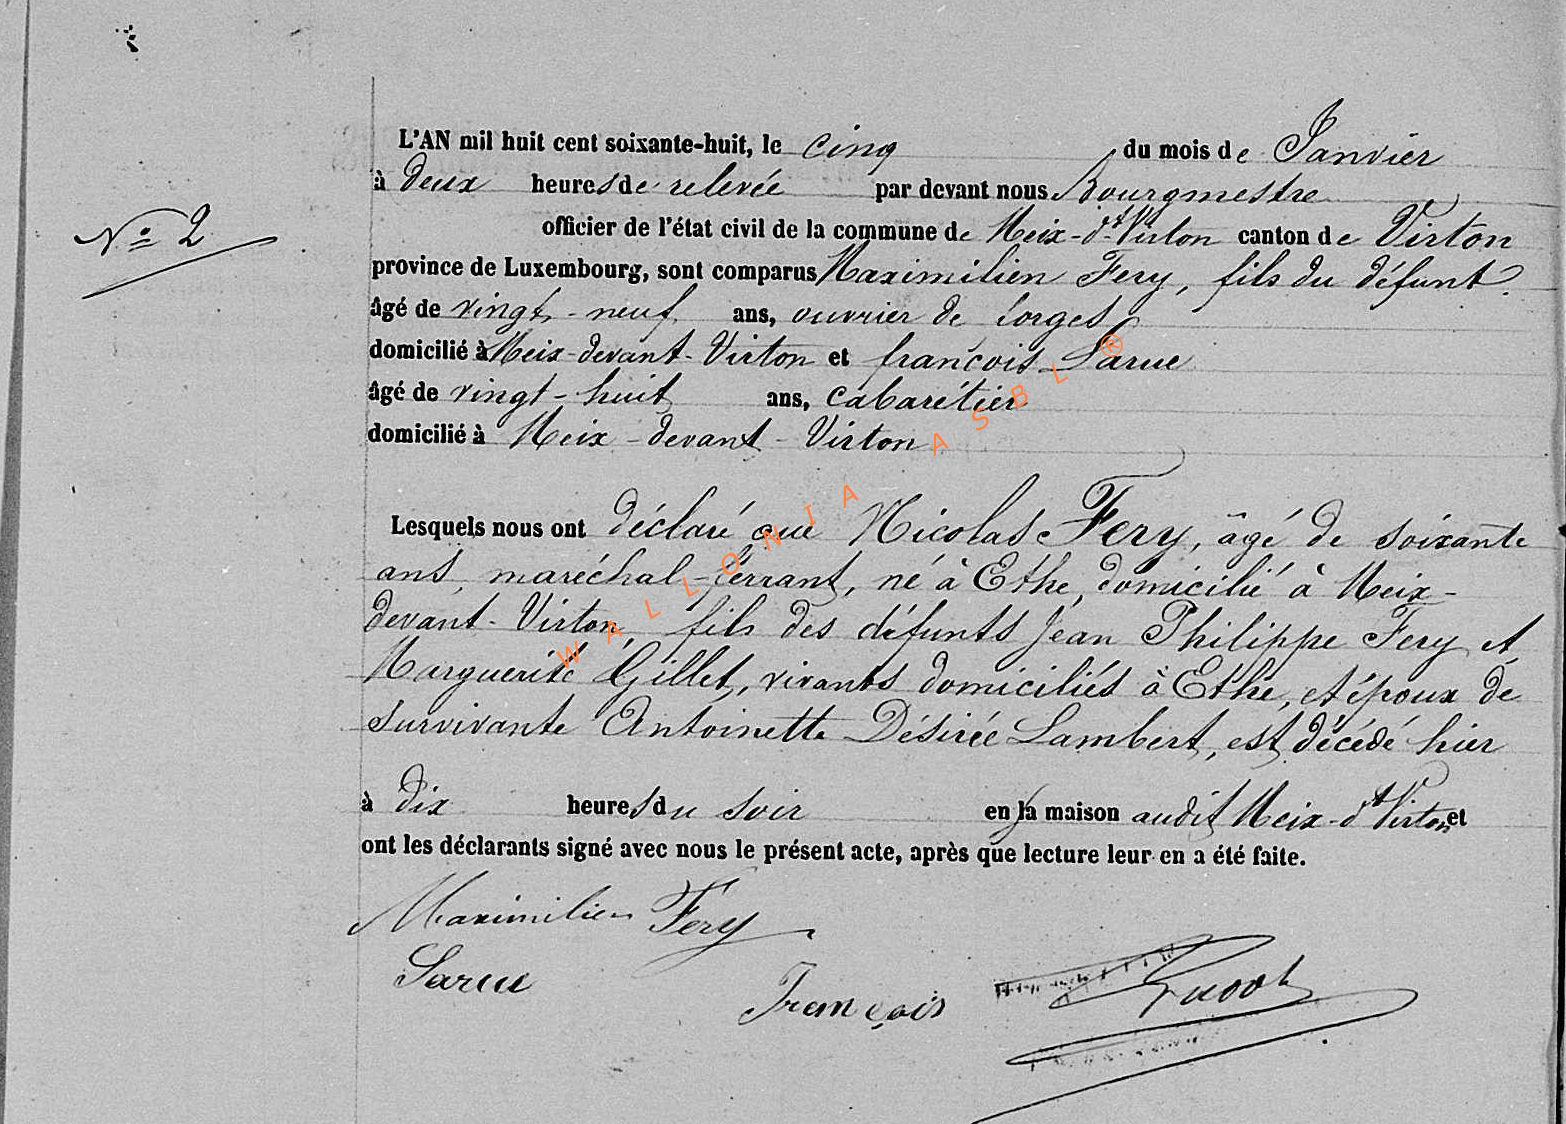 L'AN mil huit cent soixante-huit, le cinq du mois de Janvier
à deux heures de relevée par devant nous Bourgmestre
N° 2
officier de l'état civil de la commune de Meix-dt Virton canton de Virton
province de Luxembourg, sont comparus Maximilien Fery, fils du défunt
âgé de vingt-neuf ans, ouvrier de forges
domicilié à Meix-devant-Virton et françois Larue
âgé de vingt-huit ans, cabarétier
domicilié à Meix-devant-Virton
Lesquels nous ont déclaré que Nicolas Fery, âgé de soixante
ans, maréchal-ferrant, né à Ethe, domicilié à Meix-
devant-Virton, fils des défunts Jean Philippe Fery et
Marguerite Gillet, vivants domiciliés à Ethe, et époux de
survivante Antoinette Désirée Lambert, est décédé hier
à dix heures du soir en sa maison audit Meix-dt Virton et
ont les déclarants signé avec nous le présent acte, après que lecture leur en a été faite.
Maximilien Fery
Larue François
WALLONIA ASBL ®